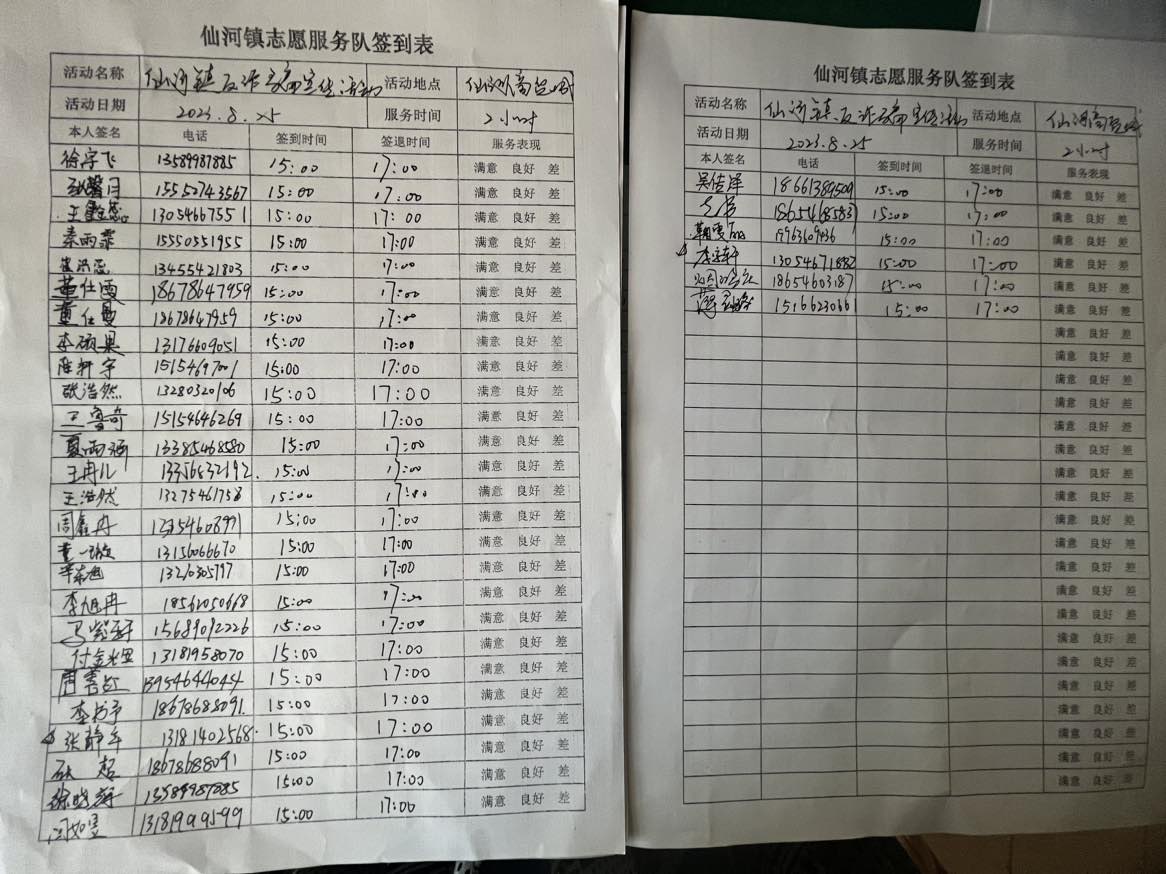 仙河镇志愿服务队签到表
活动名称 仙河镇反诈 宣传活动 活动地点 仙河 商
活动日期 2023.8.25 服务时间 2小时
本人签名 电话 签到时间 签退时间 服务表现
徐宇飞 13589987885 15:00 17:00 满意 良好 差
15550743567 15:00 17:00 满意 良好 差
王 13054667551 15:00 17:00 满意 良好 差
秦雨霏 15550551955 15:00 17:00 满意 良好 差
13455421803 15:00 17:00 满意 良好 差
董仕雯 18678647959 15:00 17:00 满意 良好 差
董仕曼 18678647959 15:00 17:00 满意 良好 差
李硕果 13176609051 15:00 17:00 满意 良好 差
陈轩宇 15:00 17:00 满意 良好 差
张浩然 13280320106 15:00 17:00 满意 良好 差
王鲁奇 15154646269 15:00 17:00 满意 良好 差
夏雨涵 13385468580 15:00 17:00 满意 良好 差
王冉儿 15:00 17:00 满意 良好 差
王浩然 13275461758 15:00 17:00 满意 良好 差
周鑫冉 15:00 17:00 满意 良好 差
董一 13156066670 15:00 17:00 满意 良好 差
15:00 17:00 满意 良好 差
李旭冉 18562050668 15:00 17:00 满意 良好 差
马 15689092226 15:00 17:00 满意 良好 差
付金 13181958070 15:00 17:00 满意 良好 差
13954644044 15:00 17:00 满意 良好 差
李书宇 18678688091 15:00 17:00 满意 良好 差
张静 13181402568 15:00 17:00 满意 良好 差
超 18678688091 15:00 17:00 满意 良好 差
徐晓 13589987885 15:00 17:00 满意 良好 差
闫如昱 13181999599 15:00 17:00 满意 良好 差
仙河镇志愿服务队签到表
活动名称 仙河镇反诈 宣传活动 活动地点 仙河商
活动日期 2023.8.25 服务时间 2小时
本人签名 电话 签到时间 签退时间 服务表现
吴佳泽 18661389509 15:00 17:00 满意 良好 差
18654685837 15:00 17:00 满意 良好 差
15:00 17:00 满意 良好 差
李 轩 15:00 17:00 满意 良好 差
18654603187 15:00 17:00 满意 良好 差
薛 15166230661 15:00 17:00 满意 良好 差
满意 良好 差
满意 良好 差
满意 良好 差
满意 良好 差
满意 良好 差
满意 良好 差
满意 良好 差
满意 良好 差
满意 良好 差
满意 良好 差
满意 良好 差
满意 良好 差
满意 良好 差
满意 良好 差
满意 良好 差
满意 良好 差
满意 良好 差
满意 良好 差
满意 良好 差
满意 良好 差